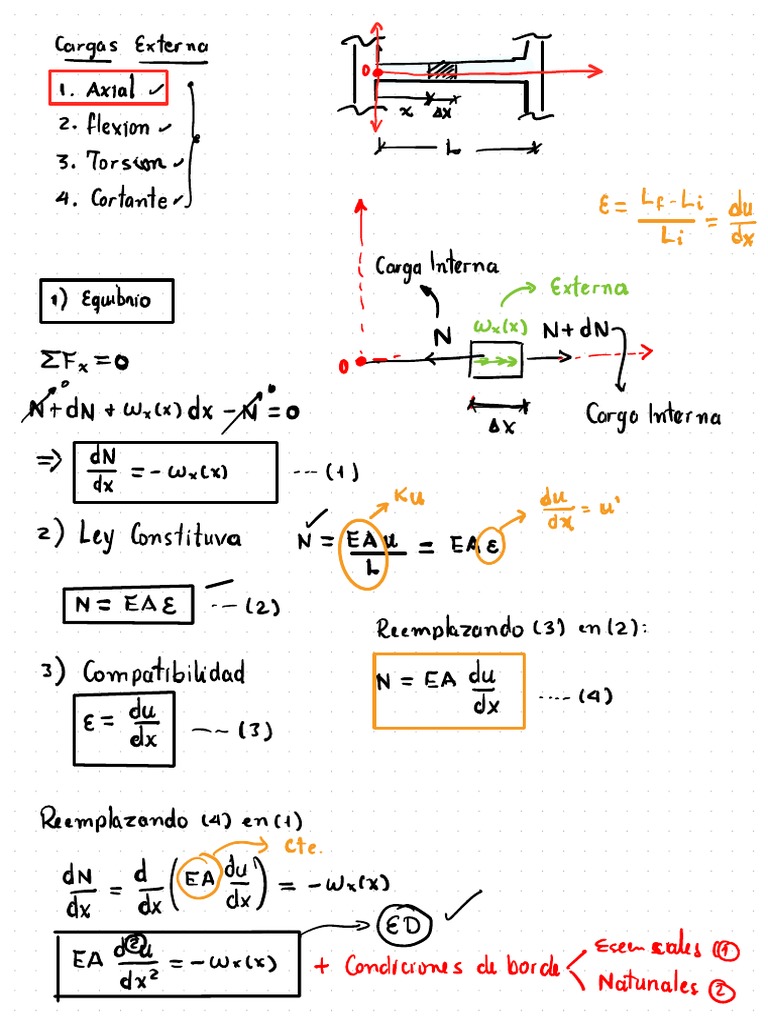 Cargas Externa
1. Axial ✓
2. flexion ✓
3. Torsion ✓
4. Cortante ✓
0
x Δx
L
ε = (Lf - Li)/Li = du/dx
Carga Interna
Externa
N
ωx(x)
N + dN
0
Δx
Cargo Interna
1) Equibrio
ΣFx = 0
0 0
N + dN + ωx(x) dx - N = 0
⇒ dN/dx = - ωx(x) ---(1)
2) Ley Constituva
Ku
N = EA u/L = EA ε
du/dx = u'
N = EA ε ---(2)
3) Compatibilidad
ε = du/dx ---(3)
Reemplazando (3) en (2):
N = EA du/dx ----(4)
Reemplazando (4) en (1)
Cte.
dN/dx = d/dx (EA du/dx) = - ωx(x)
ED ✓
EA d²u/dx² = - ωx(x)
+ Condiciones de borde
Esenciales ①
Naturales ②